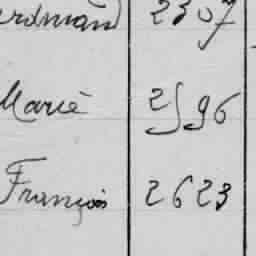 erdinand 2307
Marie 2596
François 2623